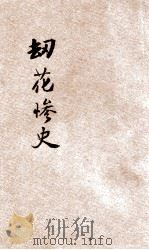 刼花惨史
mtoou.info